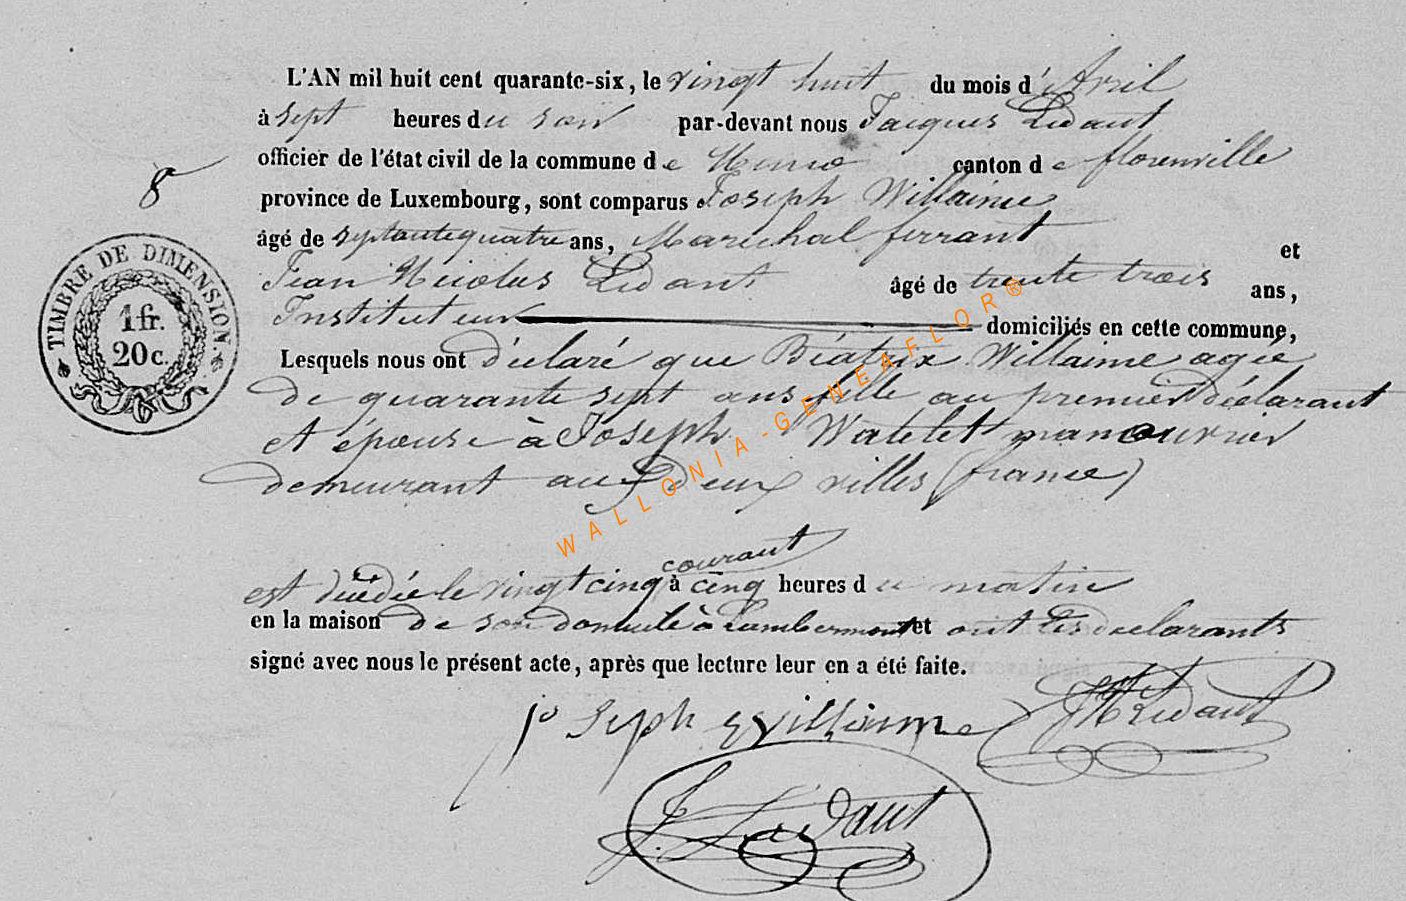 L'AN mil huit cent quarante-six, le vingt huit du mois d'Avril
à sept heures du soir par-devant nous Jacques Lidant
officier de l'état civil de la commune de Muno canton de florenville
province de Luxembourg, sont comparus Joseph Willaime
âgé de septantequatre ans, Marechal ferrant et
Jean Nicolas Lidant âgé de trente trois ans,
Instituteur domiciliés en cette commune,
Lesquels nous ont déclaré que Béatrix Willaime agée
de quarante sept ans fille au premier déclarant
et épouse à Joseph Watelet manouvrier
demeurant aux deux villes (france)
courant
est décédée le vingt cinq à cinq heures du matin
en la maison de son domicile à Lambermont et ont les declarants
signé avec nous le présent acte, après que lecture leur en a été faite.
joseph Willaime JN Lidant
J. Lidant
8
TIMBRE DE DIMENSION.
1 fr.
20 c.
WALLONIA-GENEAFLOR®